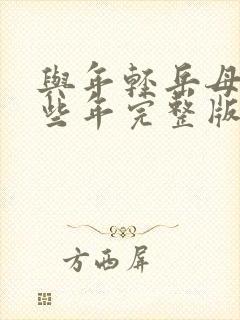 與年輕岳母
些年完整版
方西屏